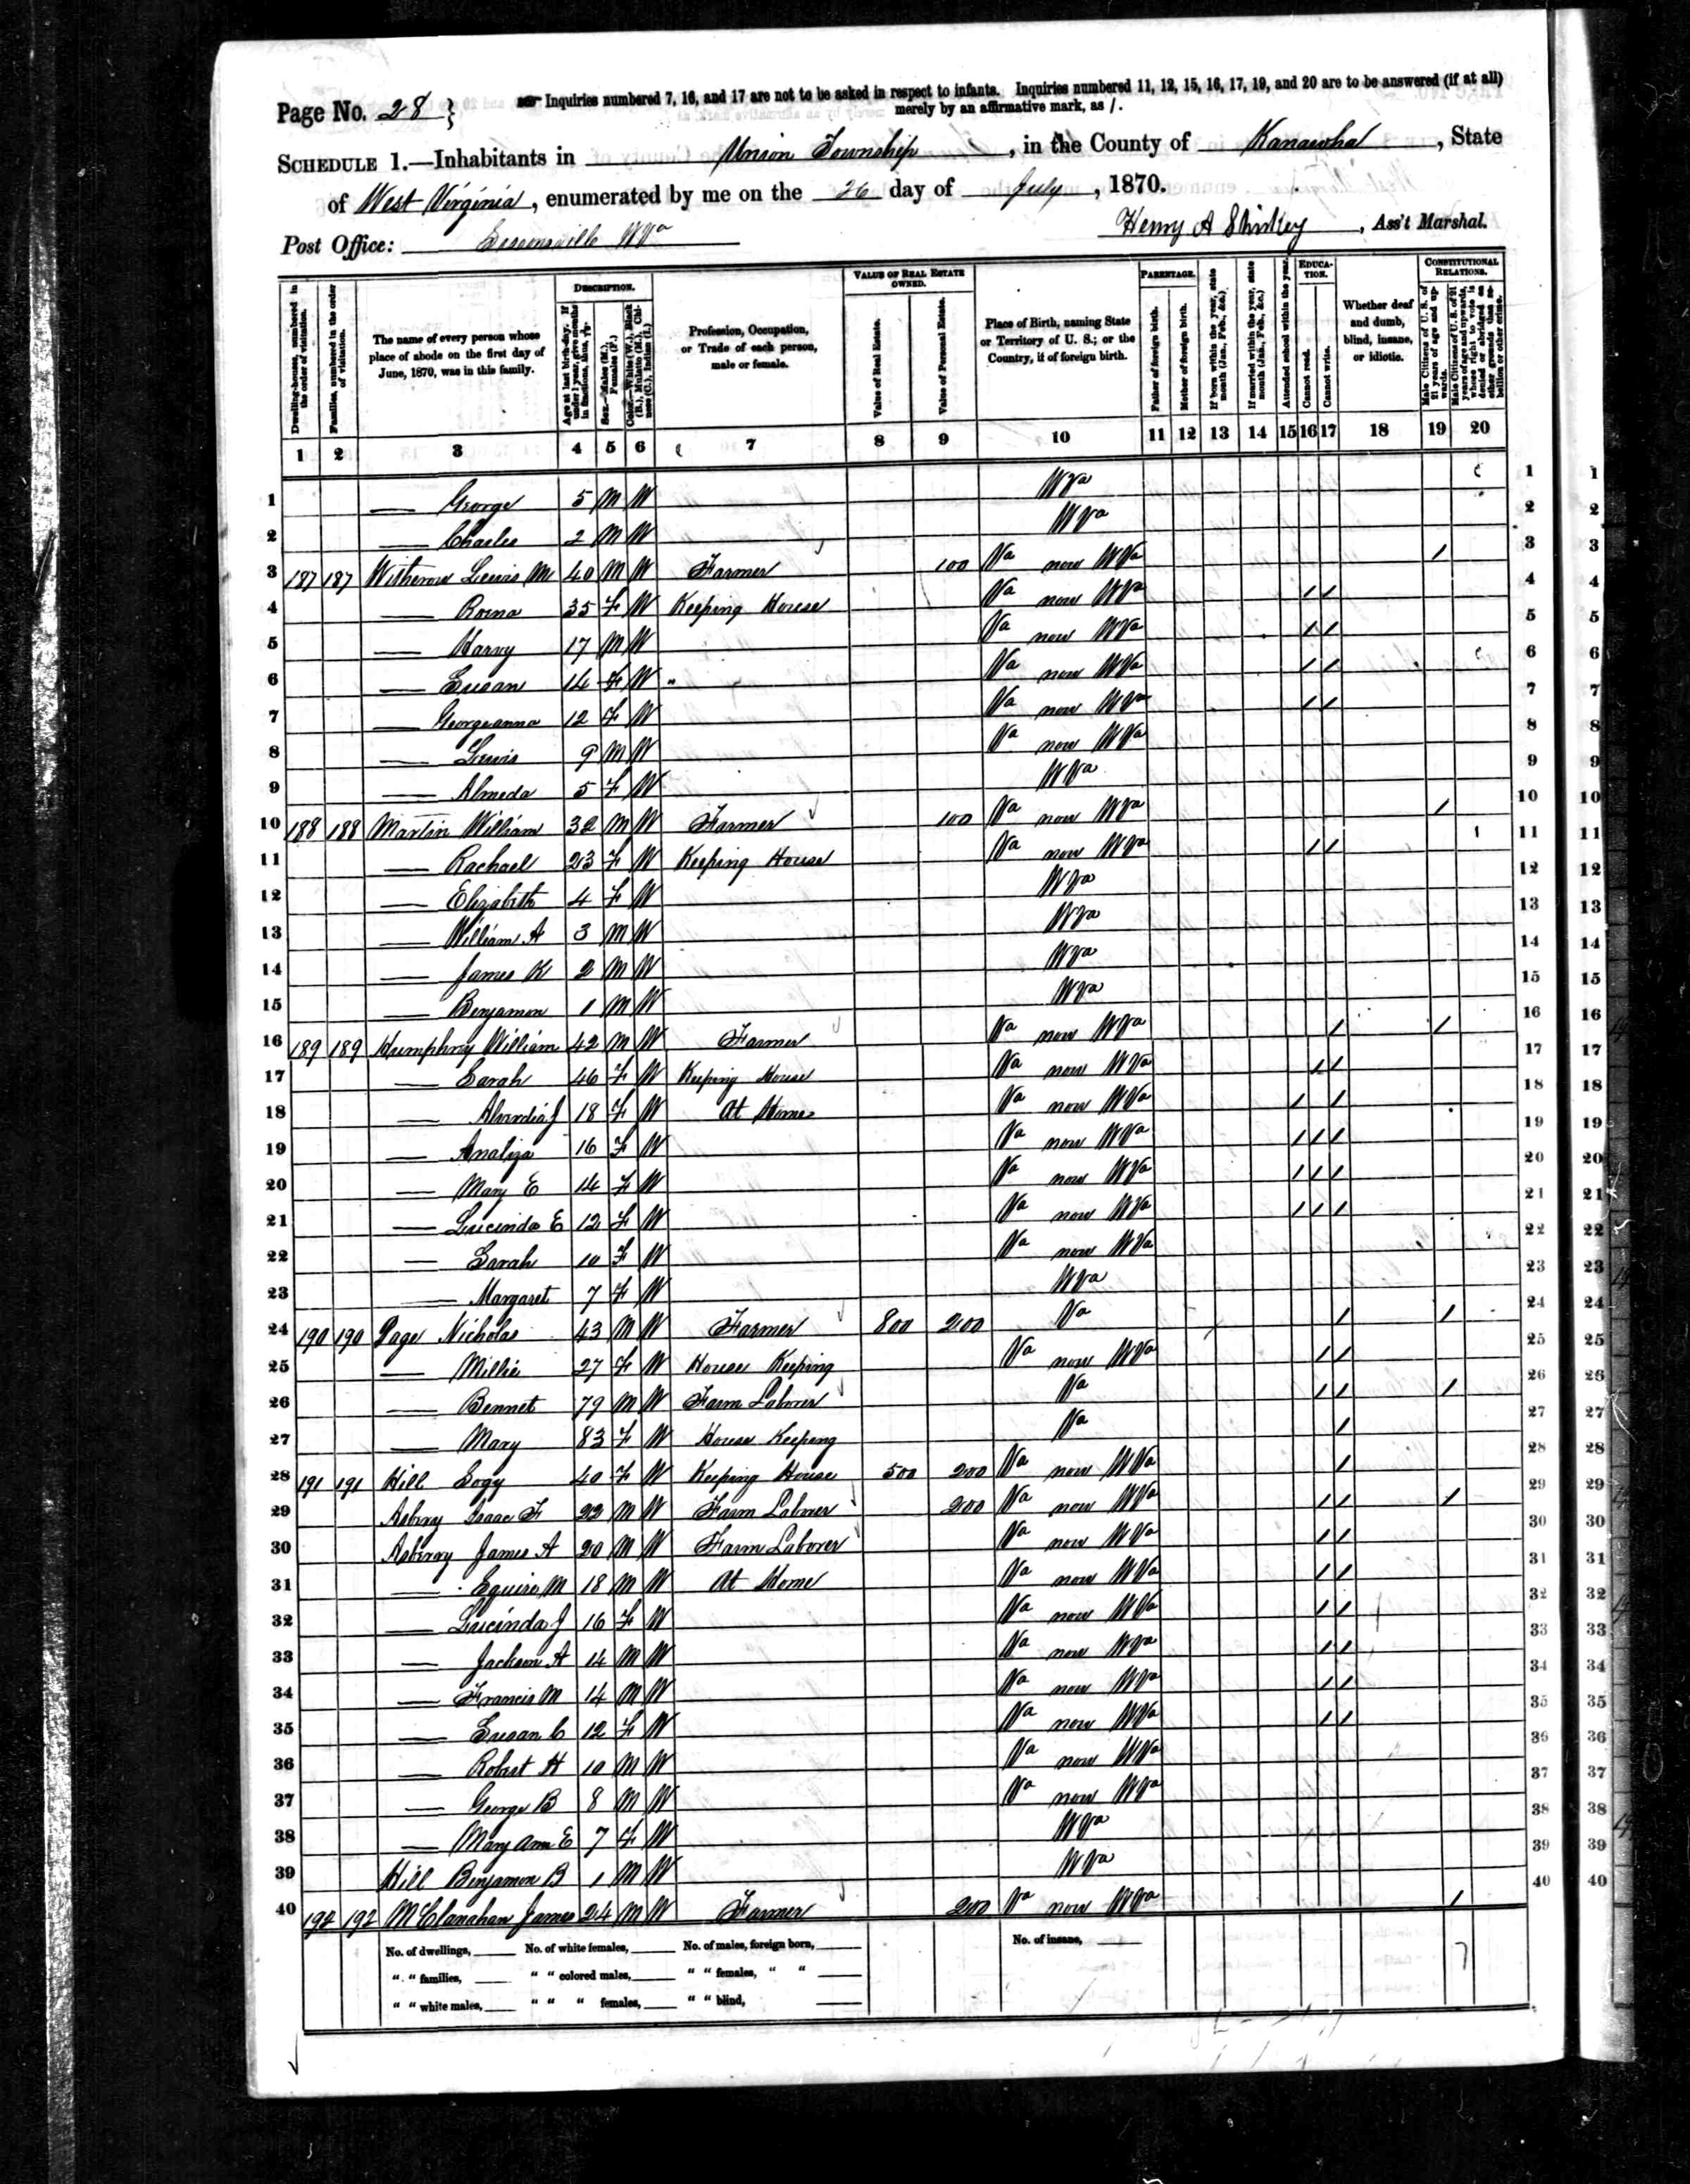 Page No. 28 } Inquiries numbered 7, 16, and 17 are not to be asked in respect to infants. Inquiries numbered 11, 12, 15, 16, 17, 19, and 20 are to be answered (if at all)
merely by an affirmative mark, as /.
SCHEDULE 1.—Inhabitants in Union Township, in the County of Kanawha, State
of West Virginia, enumerated by me on the 26 day of July, 1870.
Post Office: WVa
Henry A Shirkey, Ass't Marshal.
Dwelling-houses, numbered in the order of visitation.
Families, numbered in the order of visitation.
The name of every person whose place of abode on the first day of June, 1870, was in this family.
DESCRIPTION.
Age at last birth-day. If under 1 year, give months in fractions, thus,
Sex.—Males (M.), Females (F.)
Color.—White (W.), Black (B.), Mulatto (M.), Chinese (C.), Indian (I.)
Profession, Occupation, or Trade of each person, male or female.
VALUE OF REAL ESTATE OWNED.
Value of Real Estate.
Value of Personal Estate.
Place of Birth, naming State or Territory of U. S.; or the Country, if of foreign birth.
PARENTAGE.
Father of foreign birth.
Mother of foreign birth.
If born within the year, state month (Jan., Feb., &c.)
If married within the year, state month (Jan., Feb., &c.)
Attended school within the year.
EDUCATION.
Cannot read.
Cannot write.
Whether deaf and dumb, blind, insane, or idiotic.
CONSTITUTIONAL RELATIONS.
Male Citizens of U. S. of 21 years of age and upwards.
Male Citizens of U. S. of 21 years of age and upwards, whose right to vote is denied or abridged on other grounds than rebellion or other crime.
1 2 3 4 5 6 7 8 9 10 11 12 13 14 15 16 17 18 19 20
1 — George 5 M W WVa 1
2 — Charles 2 M W WVa 2
3 187 187 Witherow Lewis M 40 M W Farmer 100 Va now WVa / 3
4 — 35 F W Keeping House Va now WVa / / 4
5 — Harvy 17 M W Va now WVa / / 5
6 — Susan 14 F W " Va now WVa / / 6
7 — Georgeanna 12 F W Va now WVa / / 7
8 — Lewis 9 M W Va now WVa 8
9 — Almeda 5 F W WVa 9
10 188 188 Martin William 32 M W Farmer 100 Va now WVa / 10
11 — Rachael 23 F W Keeping House Va now WVa / / 11
12 — Elizabeth 4 F W WVa 12
13 — William A 3 M W WVa 13
14 — James K 2 M W WVa 14
15 — Benjamon 1 M W WVa 15
16 189 189 Humphry William 42 M W Farmer Va now WVa / / 16
17 — Sarah 46 F W Keeping House Va now WVa / / 17
18 — J 18 F W At Home Va now WVa / / 18
19 — Analiza 16 F W Va now WVa / / / 19
20 — Mary E 14 F W Va now WVa / / / 20
21 — Lucinda E 12 F W Va now WVa / / / 21
22 — Sarah 10 F W Va now WVa 22
23 — Margaret 7 F W WVa 23
24 190 190 Page Nicholas 43 M W Farmer 800 200 Va / / 24
25 — Millie 27 F W House Keeping Va now WVa / / 25
26 — Bennet 79 M W Farm Laborer Va / / / 26
27 — Mary 83 F W House Keeping Va / 27
28 191 191 Hill 40 F W Keeping House 500 200 Va now WVa / 28
29 Asbery Isaac F 22 M W Farm Laborer 200 Va now WVa / / / 29
30 Asberry James A 20 M W Farm Laborer Va now WVa / / 30
31 — Squire M 18 M W At Home Va now WVa / / 31
32 — Lucinda J 16 F W Va now WVa / / 32
33 — Jackson A 14 M W Va now WVa / / 33
34 — Francis M 14 M W Va now WVa / / 34
35 — Susan C 12 F W Va now WVa / / 35
36 — Robert H 10 M W Va now WVa 36
37 — George B 8 M W Va now WVa 37
38 — Mary Ann E 7 F W WVa 38
39 Hill Benjamon B 1 M W WVa 39
40 192 192 McClanahan James 24 M W Farmer 200 Va now WVa / 40
No. of dwellings, ____ No. of white females, ____ No. of males, foreign born, ____ No. of insane, ____
" " families, ____ " " colored males, ____ " " females, " " ____ 7
" " white males, ____ " " " females, ____ " " blind, ____